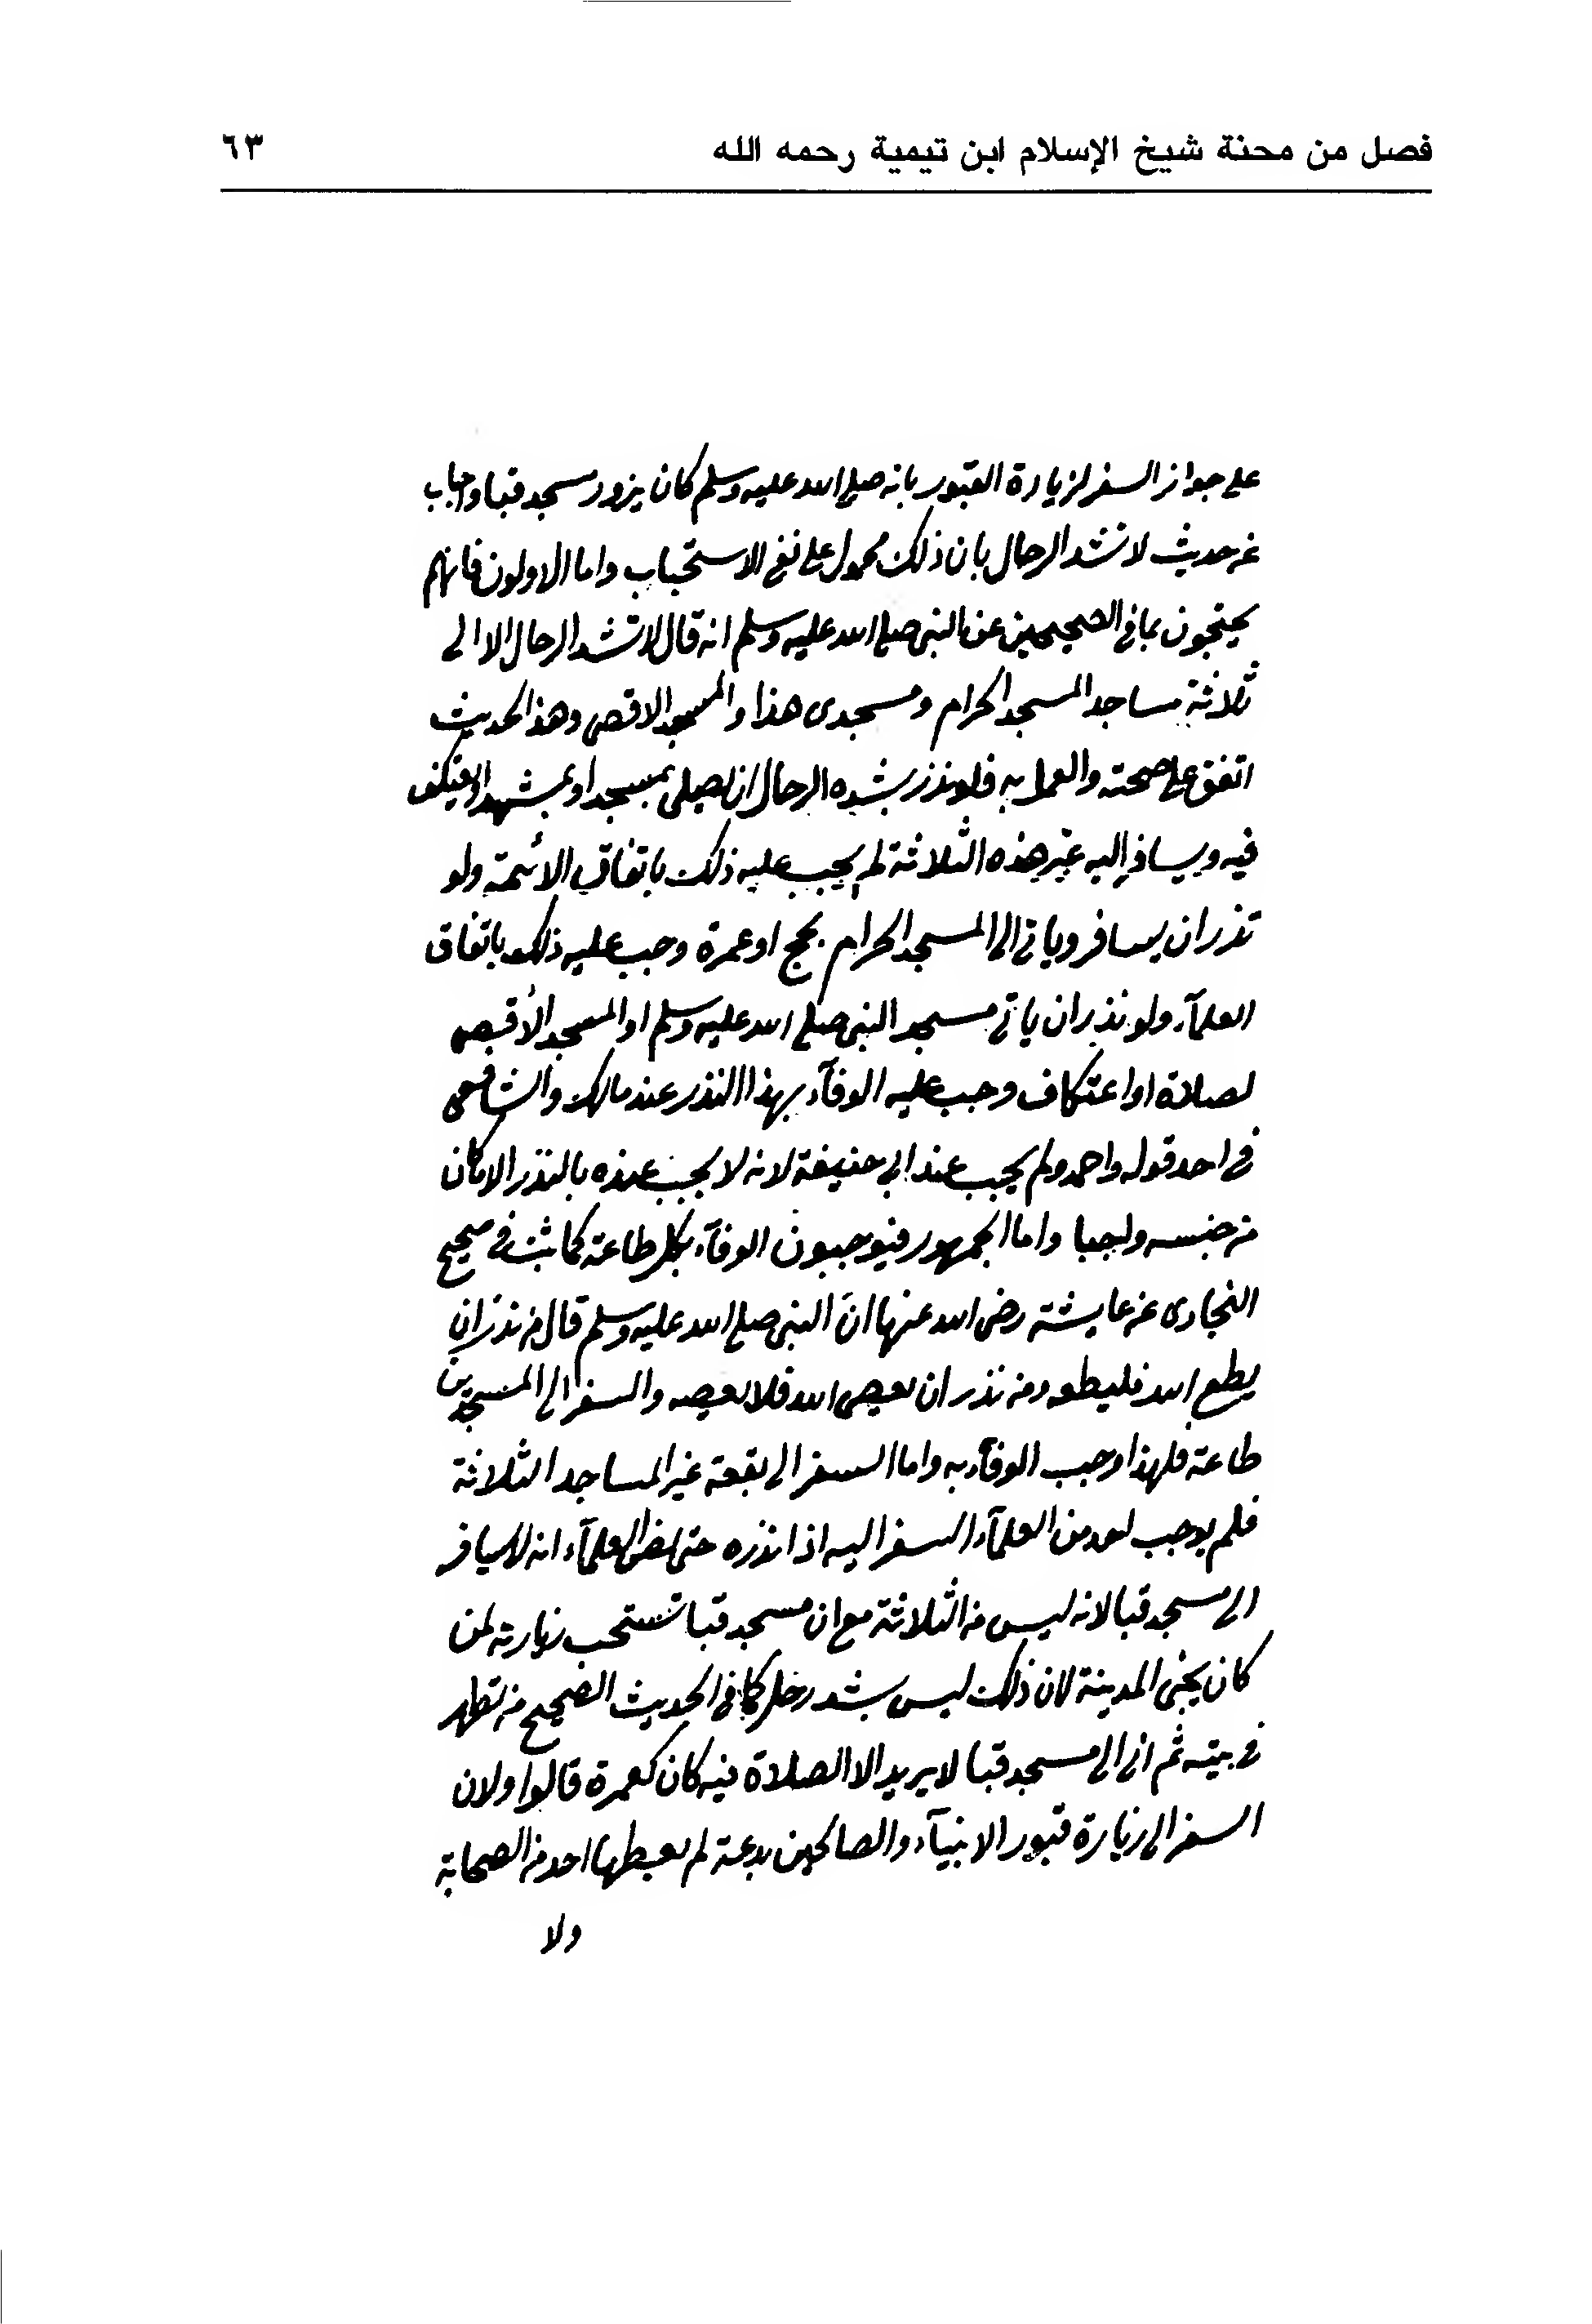 فصل من محنة شيخ الإسلام ابن تيمية رحمه الله ٦٣
على جواز السفر لزيارة القبور بانه صلى الله عليه وسلم كان يزور مسجد قبا واجاب
عن حديث لا تشد الرحال بان ذلك محمول على نفي الاستحباب واما الاولون فانهم
يحتجون بما في الصحيحين عن النبي صلى الله عليه وسلم انه قال لا تشد الرحال الا الى
ثلاثة مساجد المسجد الحرام ومسجدى هذا والمسجد الاقصى وهذا الحديث
اتفق على صحته والعمل به فلو نذر بشده الرحال ان يصلى بمسجد او بمشهد او يعتكف
فيه ويسافر إليه غير هذه الثلاثة لم يجب عليه ذلك باتفاق الأئمة ولو
نذر ان يسافر وياتي الى المسجد الحرام بحج او عمرة وجب عليه ذلك باتفاق
العلمآء ولو نذر ان ياتي مسجد النبي صلى الله عليه وسلم او المسجد الأقصى
لصلاة او اعتكاف وجب عليه الوفآء بهذا النذر عند مالك والشافعى
في احد قوله واحمد ولم يجب عند ابي حنيفة لانه لا يجب عنده بالنذر الا ماكان
من جنسه واجبا واما الجمهور فيوجبون الوفآء بكل طاعة كما ثبت في صحيح
البخارى عن عايشة رضى الله عنها انَ النبي صلى الله عليه وسلم قال من نذر ان
يطع الله فليطعه ومن نذر ان يعصى الله فلا يعصه والسفر الى المسجدين
طاعة فلهذا وجب الوفآء به واما السفر الى بقعة غير المساجد الثلاثة
فلم يوجب احد من العلمآء السفر اليه اذا نذره حتى نص العلمآء انه لا يسافر
الى مسجد قبا لانه ليس من الثلاثة مع ان مسجد قبا تستحب زيارته لمن
كان المدينة لان ذلك ليس بشد رحل كما في الحديث الصحيح من تطهر
في بيته ثم اتى الى مسجد قبا لا يريد الا الصلاة فيه كان كعمرة قالوا ولان
السفر الى زيارة قبور الانبيآء والصالحين بدعة لم احد من الصحابة
ولا